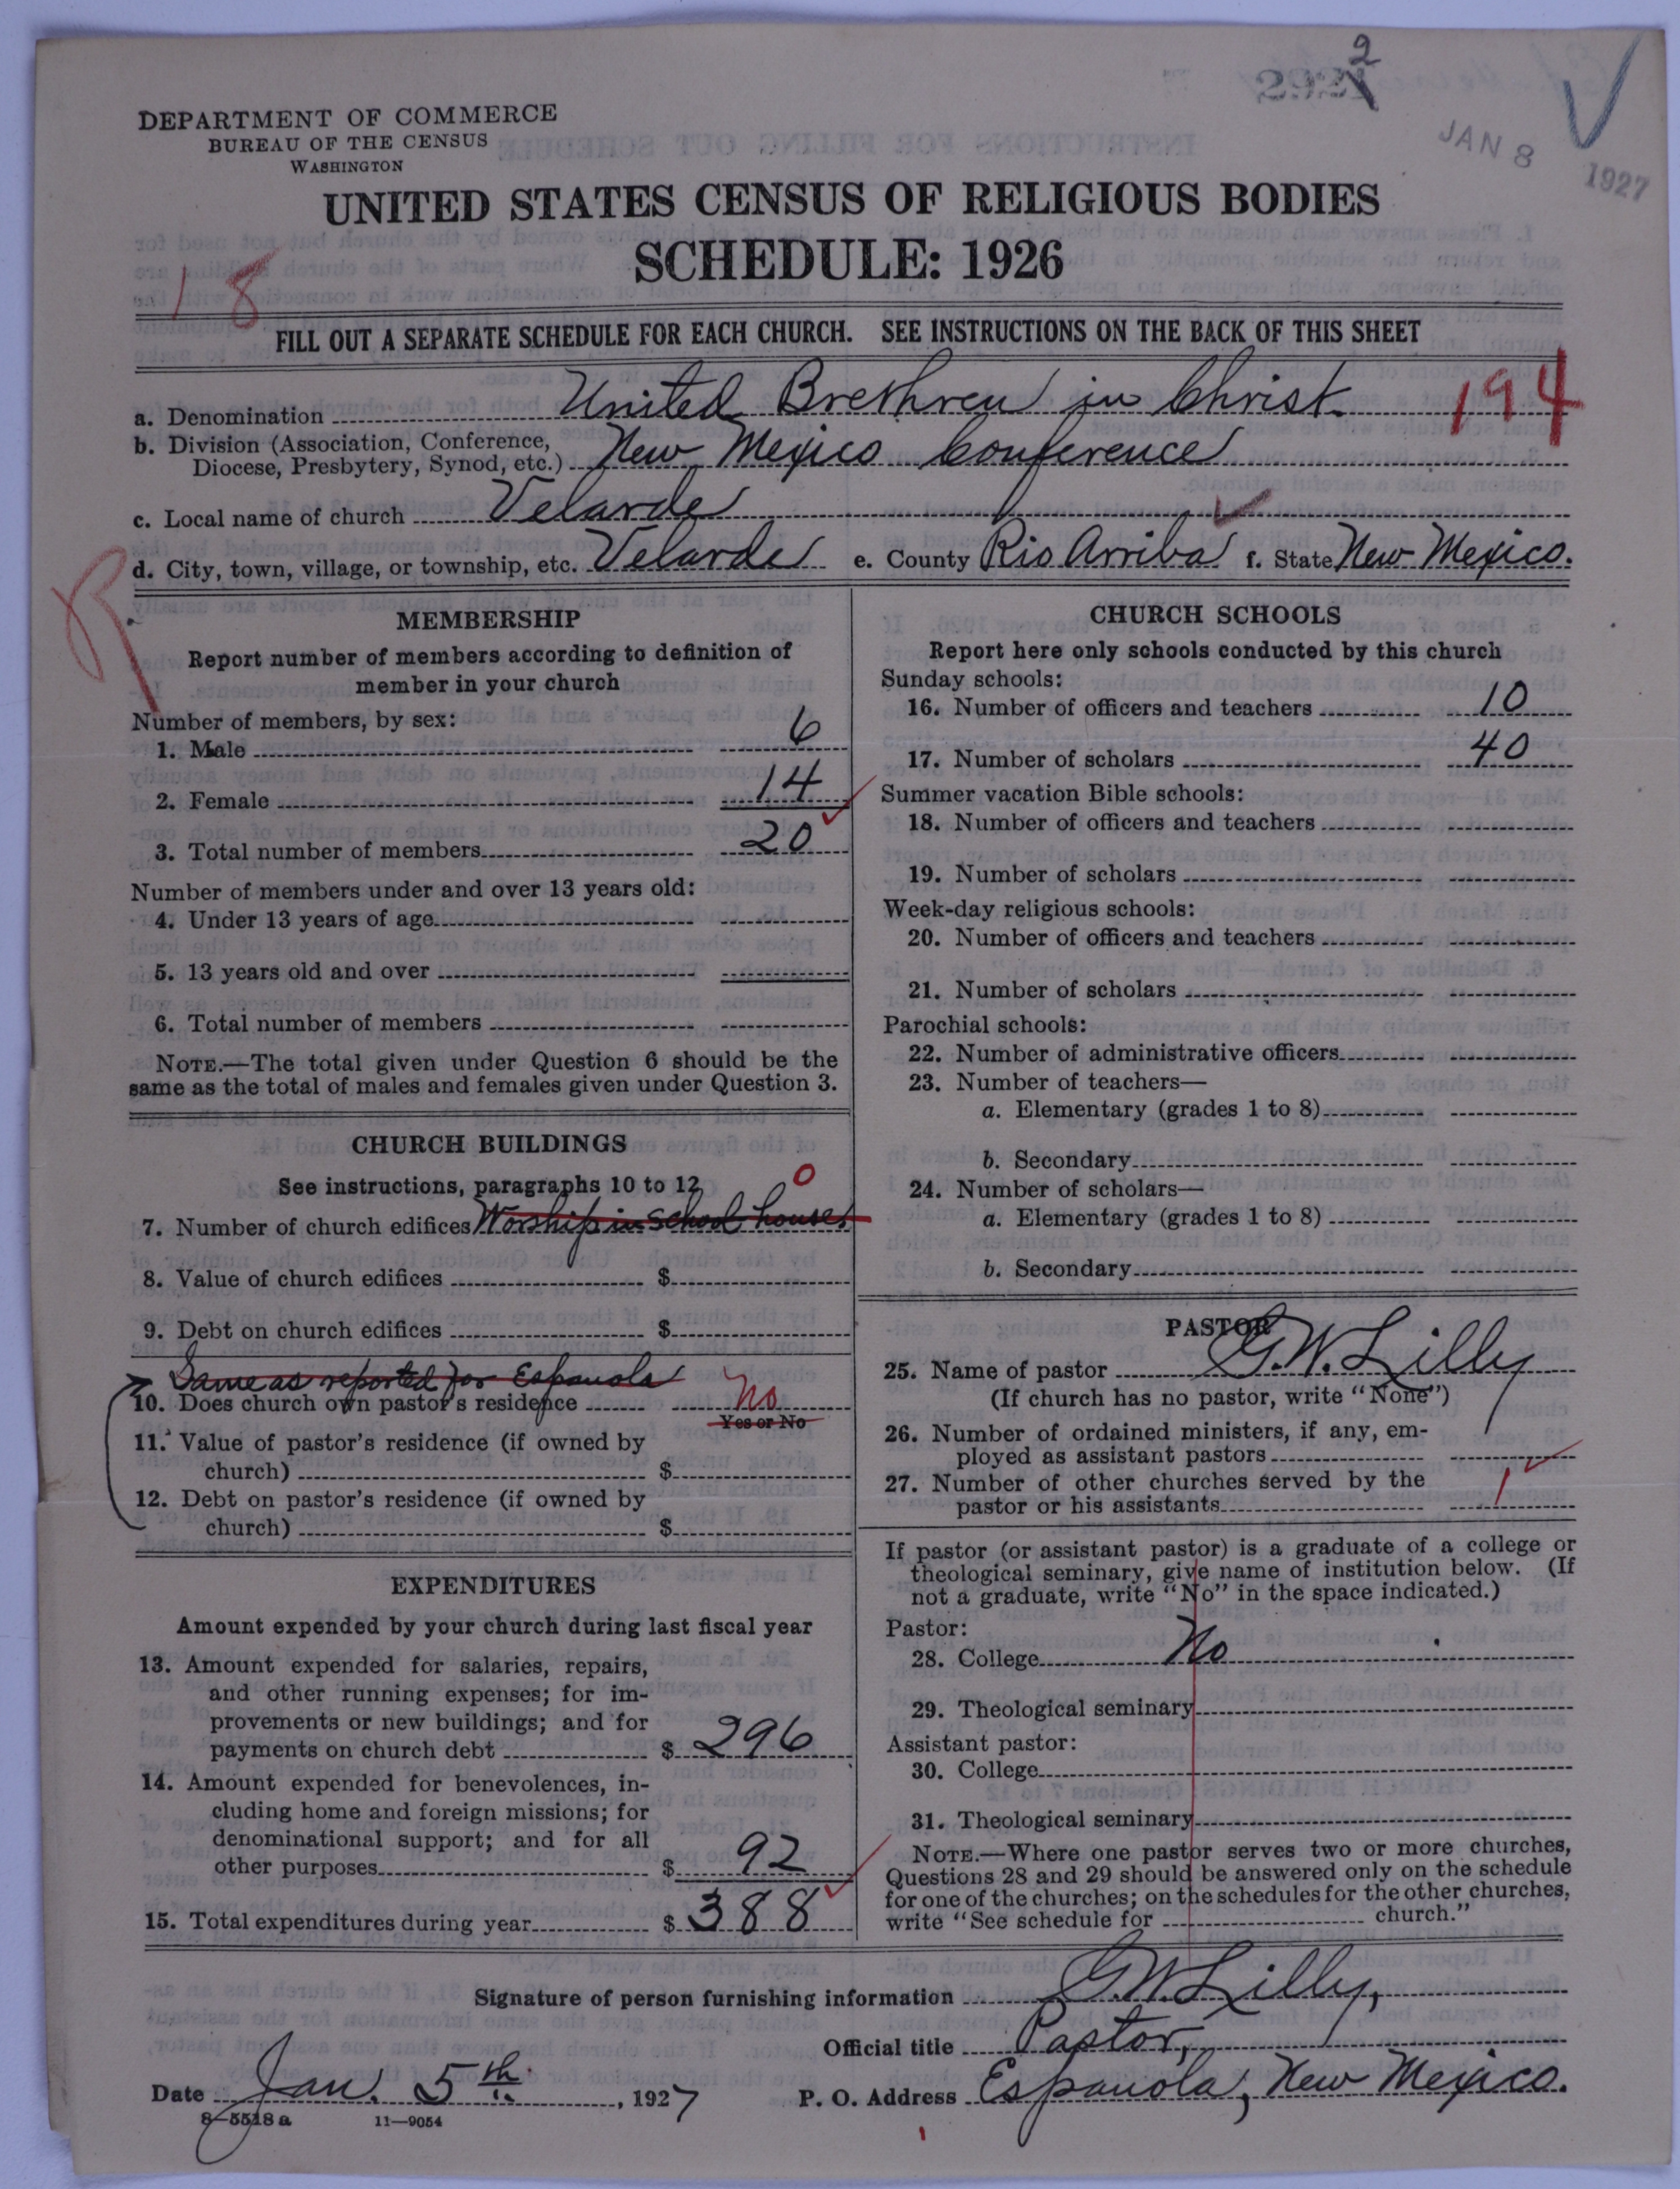 2
2921
JAN 8
1927
DEPARTMENT OF COMMERCE
BUREAU OF THE CENSUS
WASHINGTON
UNITED STATES CENSUS OF RELIGIOUS BODIES
SCHEDULE: 1926
18
FILL OUT A SEPARATE SCHEDULE FOR EACH CHURCH. SEE INSTRUCTIONS ON THE BACK OF THIS SHEET
194
a. Denomination United Brethren in Christ
b. Division (Association, Conference,
Diocese, Presbytery, Synod, etc.) New Mexico Conference
c. Local name of church Velarde
d. City, town, village, or township, etc. Velarde e. County Rio Arriba f. State New Mexico.
R
MEMBERSHIP
Report number of members according to definition of
member in your church
Number of members, by sex:
1. Male 6
2. Female 14
3. Total number of members 20
Number of members under and over 13 years old:
4. Under 13 years of age
5. 13 years old and over
6. Total number of members
NOTE.—The total given under Question 6 should be the
same as the total of males and females given under Question 3.
CHURCH BUILDINGS
See instructions, paragraphs 10 to 12
0
7. Number of church edifices Worship in school house.
8. Value of church edifices $
9. Debt on church edifices $
Same as reported for Espanola
10. Does church own pastor's residence No
Yes or No
11. Value of pastor's residence (if owned by
church) $
12. Debt on pastor's residence (if owned by
church) $
EXPENDITURES
Amount expended by your church during last fiscal year
13. Amount expended for salaries, repairs,
and other running expenses; for im-
provements or new buildings; and for
payments on church debt $ 296
14. Amount expended for benevolences, in-
cluding home and foreign missions; for
denominational support; and for all
other purposes $ 92
15. Total expenditures during year $ 388
CHURCH SCHOOLS
Report here only schools conducted by this church
Sunday schools:
16. Number of officers and teachers 10
17. Number of scholars 40
Summer vacation Bible schools:
18. Number of officers and teachers
19. Number of scholars
Week-day religious schools:
20. Number of officers and teachers
21. Number of scholars
Parochial schools:
22. Number of administrative officers
23. Number of teachers—
a. Elementary (grades 1 to 8)
b. Secondary
24. Number of scholars—
a. Elementary (grades 1 to 8)
b. Secondary
PASTOR
25. Name of pastor G.W. Lilly
(If church has no pastor, write "None")
26. Number of ordained ministers, if any, em-
ployed as assistant pastors
27. Number of other churches served by the
pastor or his assistants 1
If pastor (or assistant pastor) is a graduate of a college or
theological seminary, give name of institution below. (If
not a graduate, write "No" in the space indicated.)
Pastor:
28. College No
29. Theological seminary
Assistant pastor:
30. College
31. Theological seminary
NOTE.—Where one pastor serves two or more churches,
Questions 28 and 29 should be answered only on the schedule
for one of the churches; on the schedules for the other churches,
write "See schedule for church."
Signature of person furnishing information G.W. Lilly,
Official title Pastor,
Date Jan. 5th, 1927 P. O. Address Espanola, New Mexico.
8-5518a 11—9054